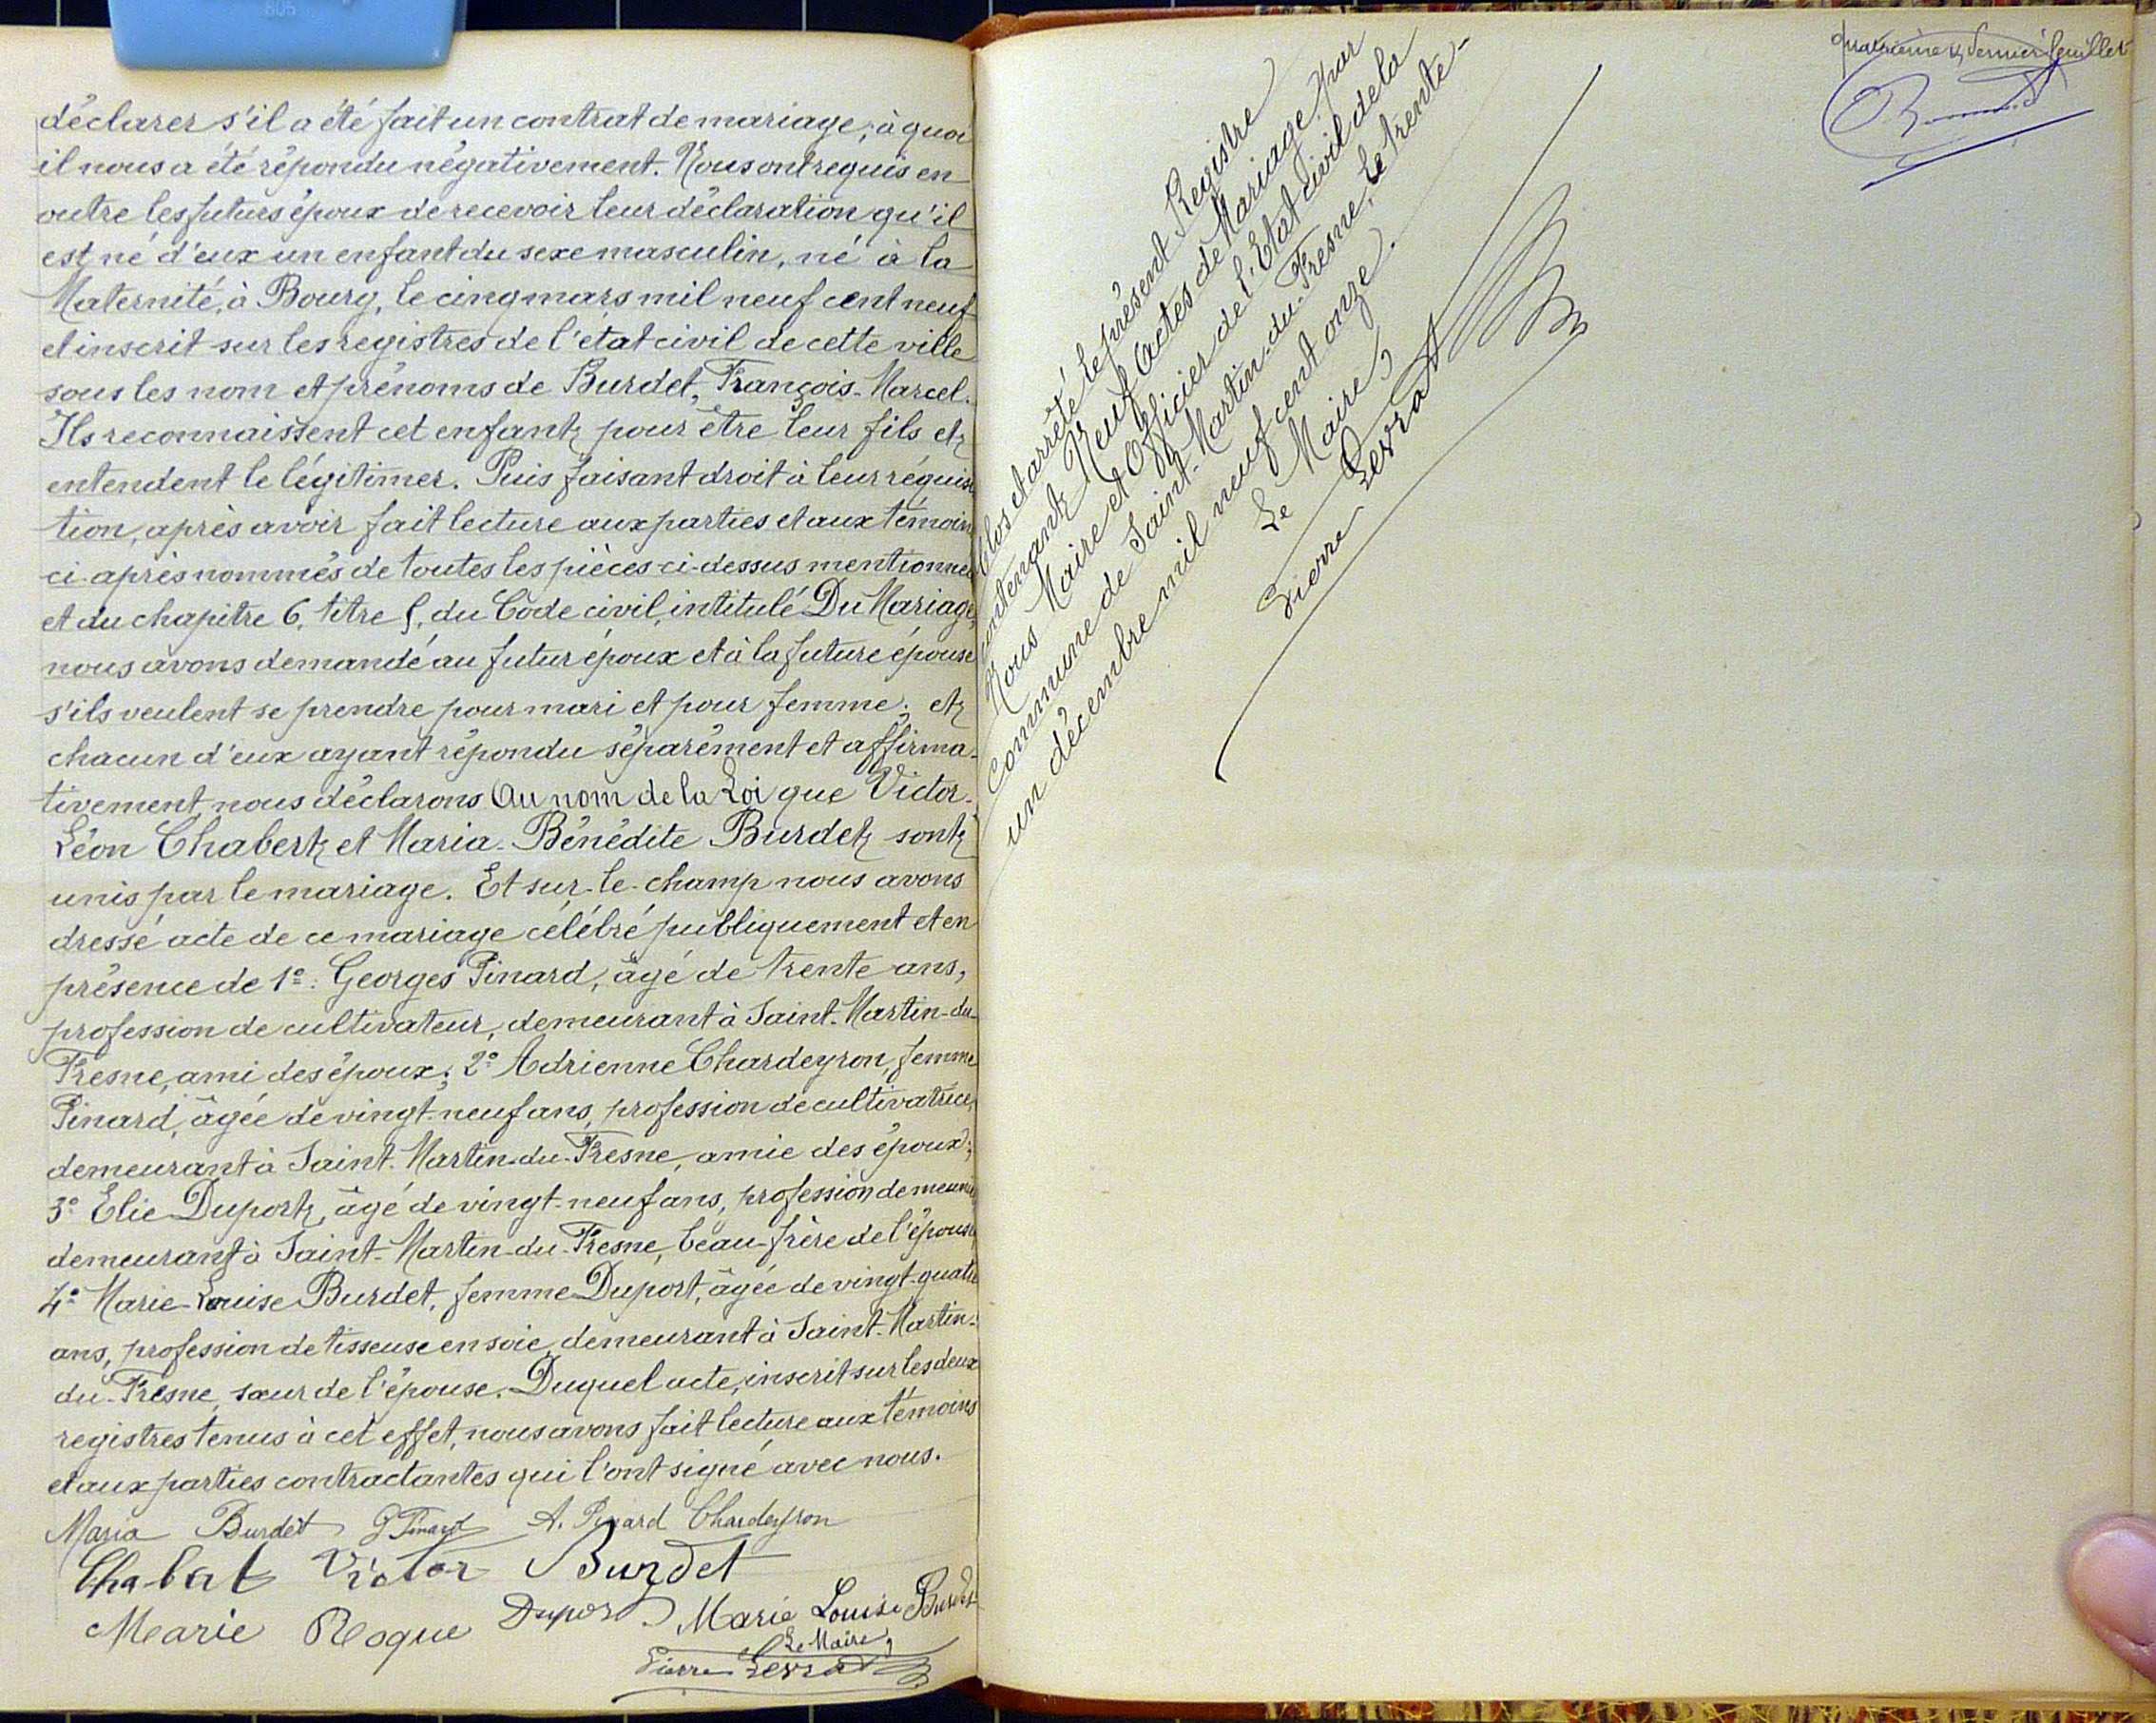 déclarer s'il a été fait un contrat de mariage, à quoi
il nous a été répondu négativement. Nous ont requis en
outre les futurs époux de recevoir leur déclaration qu'il
est né d'eux un enfant du sexe masculin, né à la
Maternité, à Bourg, le cinq mars mil neuf cent neuf
et inscrit sur les registres de l'état civil de cette ville
sous les nom et prénoms de Burdet, François-Marcel.
Ils reconnaissent cet enfant pour être leur fils et
entendent le légitimer. Puis faisant droit à leur réquisi
tion, après avoir fait lecture aux parties et aux témoins
ci-après nommés de toutes les pièces ci-dessus mentionnées
et du chapitre 6, titre 5, du Code civil, intitulé Du Mariage,
nous avons demandé au futur époux et à la future épouse
s'ils veulent se prendre pour mari et pour femme; et
chacun d'eux ayant répondu séparément et affirma-
tivement, nous déclarons Au nom de la Loi que Victor-
Léon Chabert et Maria-Bénédite Burdet sont
unis par le mariage. Et sur-le-champ nous avons
dressé acte de ce mariage célébré publiquement et en
présence de 1°: Georges Pinard, âgé de trente ans,
profession de cultivateur, demeurant à Saint-Martin-du-
Fresne, ami des époux; 2° Adrienne Chardeyron, femme
Pinard, âgée de vingt-neuf ans, profession de cultivatrice,
demeurant à Saint-Martin-du-Fresne, amie des époux;
3° Elie Duport, âgé de vingt-neuf ans, profession de meunier
demeurant à Saint-Martin-du-Fresne, beau-frère de l'épouse,
4° Marie-Louise Burdet, femme Duport, âgée de vingt-quatre
ans, profession de tisseuse en soie, demeurant à Saint-Martin-
du-Fresne, sœur de l'épouse. Duquel acte, inscrit sur les deux
registres tenus à cet effet, nous avons fait lecture aux témoins
et aux parties contractantes qui l'ont signé avec nous.
Maria Burdet G Pinard A. Pinard Chardeyron
Chabat Victor Burdet
Marie Roque Duport Marie Louise Burdet
Le Maire,
Pierre Levrat
quatrième & dernier feuillet
Clos et arrêté le présent Registre
contenant Neuf Actes de Mariage, par
Nous Maire et Officier de l'Etat civil de la
Commune de Saint-Martin-du-Fresne, le trente-
un décembre mil neuf cent onze.
Le Maire,
Pierre Levrat